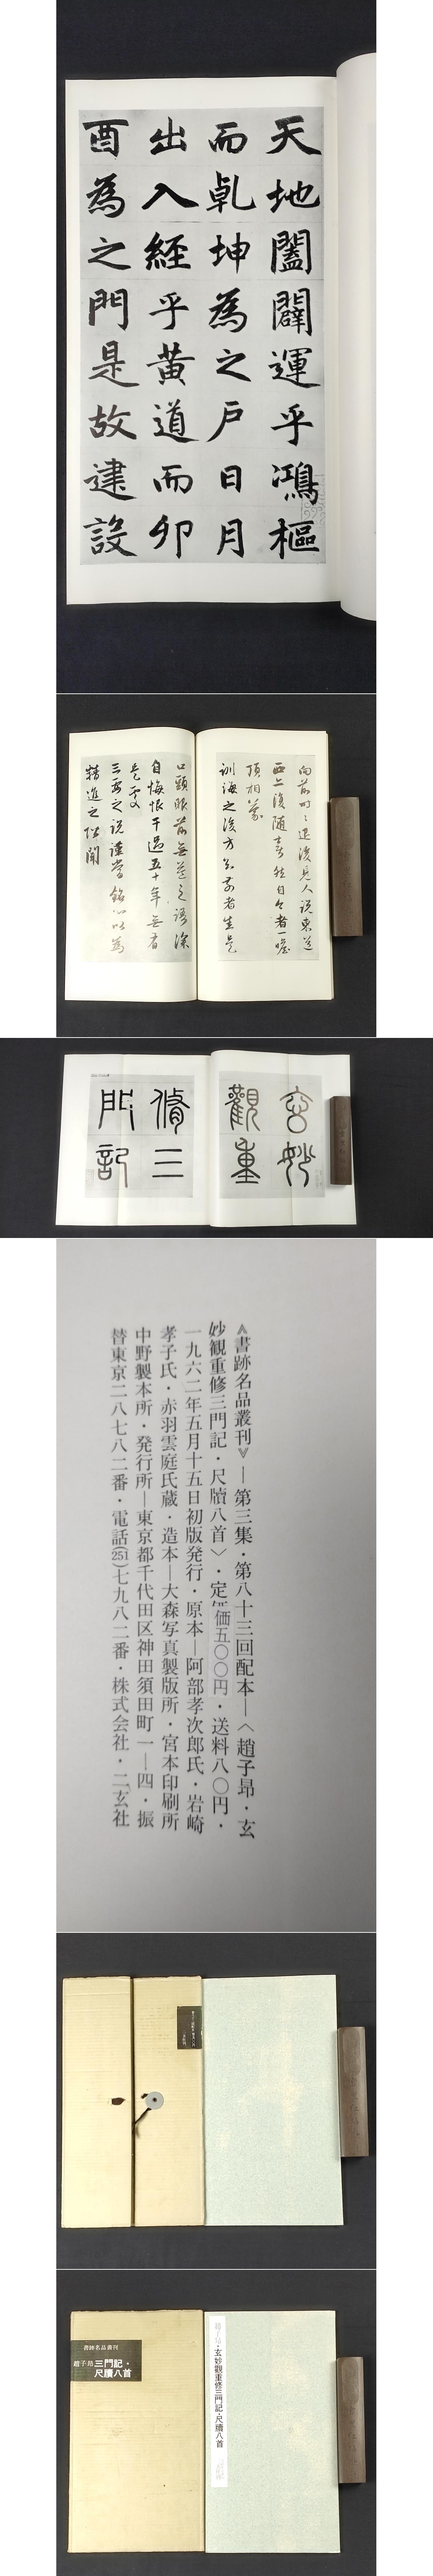 天地闔闢運乎鴻樞
而乹坤為之戸日月
出入經乎黄道而卯
酉為之門是故建設
向前叩之退後見人説東道
西亡復随喜住自今者一瞻
頂相蒙
訓誨之後方知前者生是
口頭眼前無益之語深
自悔恨干過五十年無有
是處
三要之説謹當銘心以為
精進之
玄妙
觀重
脩三
門記
≪書跡名品叢刊≫—第三集・第八十三回配本—〈趙子昻・玄
妙観重修三門記・尺牘八首〉・定価五〇〇円・送料八〇円・
一九六二年五月十五日初版発行・原本—阿部孝次郎氏・岩崎
孝子氏・赤羽雲庭氏蔵・造本—大森写真製版所・宮本印刷所
中野製本所・発行所—東京都千代田区神田須田町一—四・振
替東京二八七八二番・電話(251)七九八二番・株式会社・二玄社
書跡名品叢刊
趙子昻 三門記・
尺牘八首
趙子昻・玄妙觀重修三門記・尺牘八首